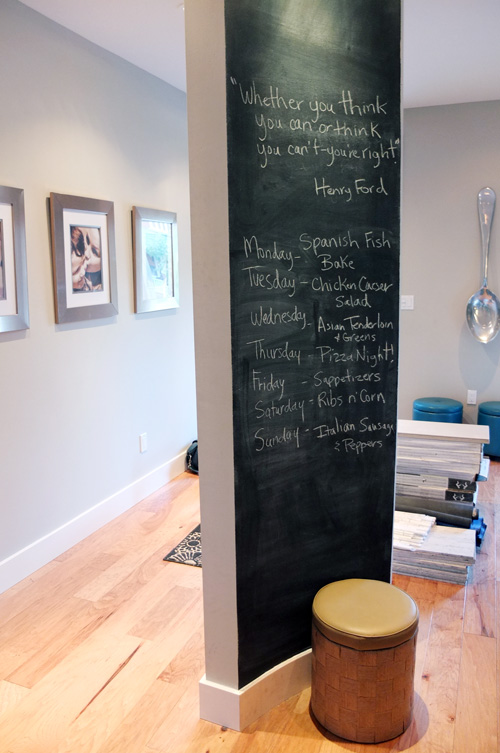 "Whether you think
you can or think
you can't-you're right"
Henry Ford
Monday - Spanish Fish
Bake
Tuesday - Chicken Caeser
Salad
Wednesday - Asian Tenderloin
& Greens
Thursday - Pizza Night!
Friday - Sappetizers
Saturday - Ribs n' Corn
Sunday - Italian Sausage
& Peppers